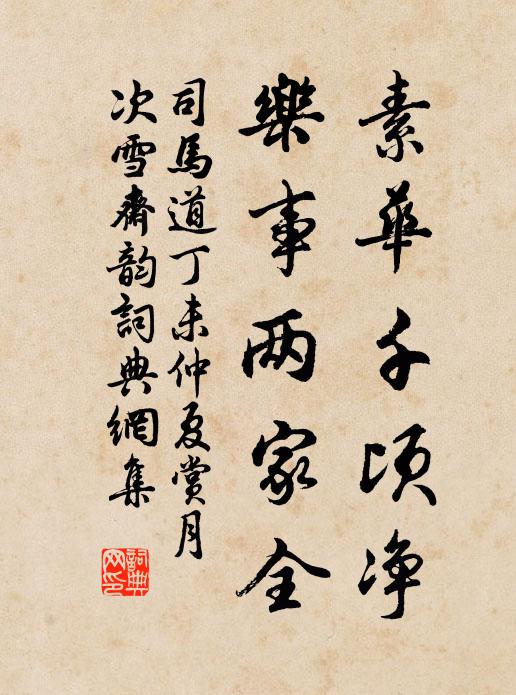 素華千頃净
樂事两家全
司馬道丁未仲夏賞月
次雪齋韵詞典網集
詞典
网印